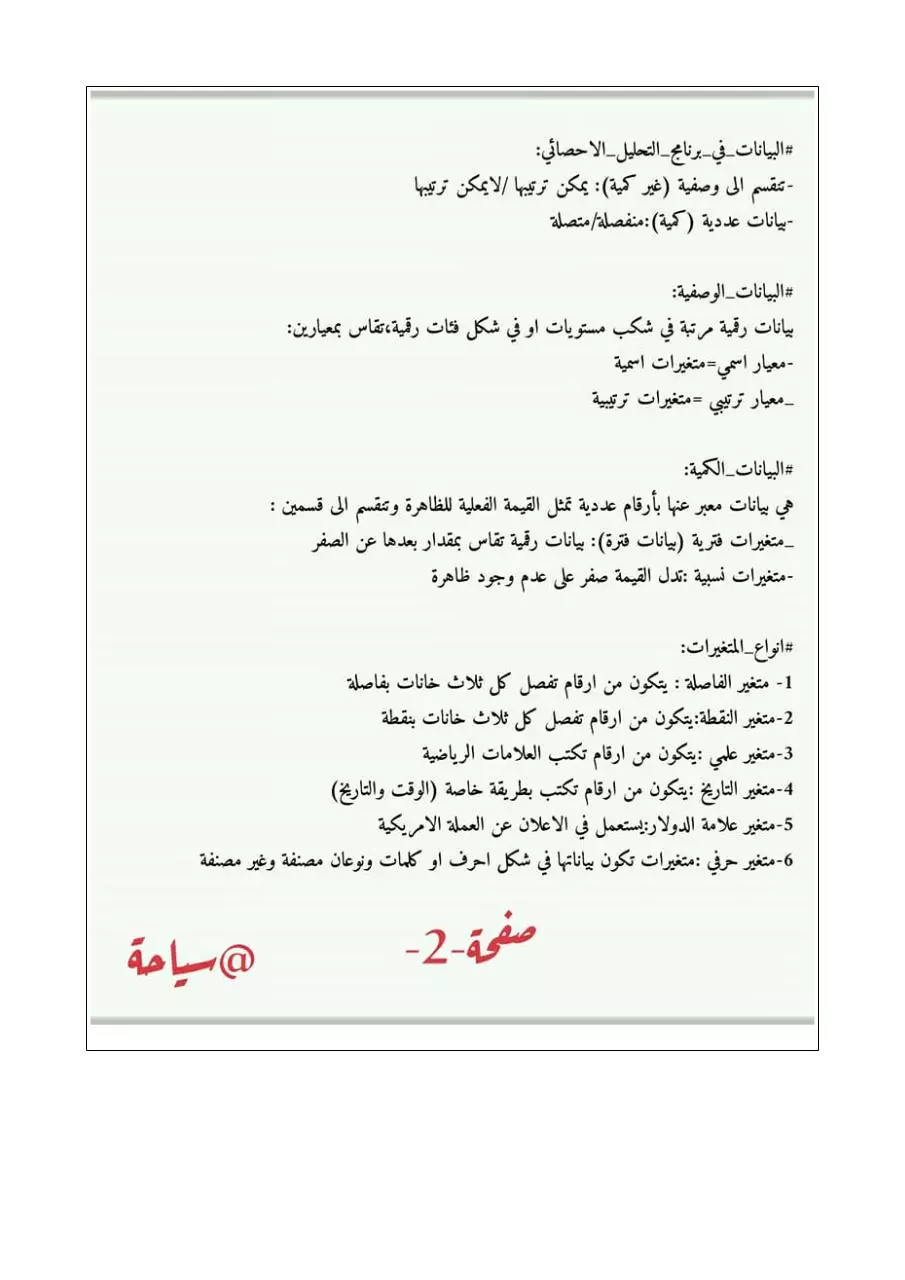 #البيانات_في_برنامج_التحليل_الاحصائي:
-تنقسم الى وصفية (غير كمية): يمكن ترتيبها /لايمكن ترتيبها
-بيانات عددية (كمية):منفصلة/متصلة
#البيانات_الوصفية:
بيانات رقمية مرتبة في شكب مستويات او في شكل فئات رقمية،تقاس بمعيارين:
-معيار اسمي=متغيرات اسمية
_معيار ترتيبي =متغيرات ترتيبية
#البيانات_الكمية:
هي بيانات معبر عنها بأرقام عددية تمثل القيمة الفعلية للظاهرة وتنقسم الى قسمين :
_متغيرات فترية (بيانات فترة): بيانات رقمية تقاس بمقدار بعدها عن الصفر
-متغيرات نسبية :تدل القيمة صفر على عدم وجود ظاهرة
#انواع_المتغيرات:
1- متغير الفاصلة : يتكون من ارقام تفصل كل ثلاث خانات بفاصلة
2-متغير النقطة:يتكون من ارقام تفصل كل ثلاث خانات بنقطة
3-متغير علمي :يتكون من ارقام تكتب العلامات الرياضية
4-متغير التاريخ :يتكون من ارقام تكتب بطريقة خاصة (الوقت والتاريخ)
5-متغير علامة الدولار:يستعمل في الاعلان عن العملة الامريكية
6-متغير حرفي :متغيرات تكون بياناتها في شكل احرف او كلمات ونوعان مصنفة وغير مصنفة
صفحة-2-
@سياحة